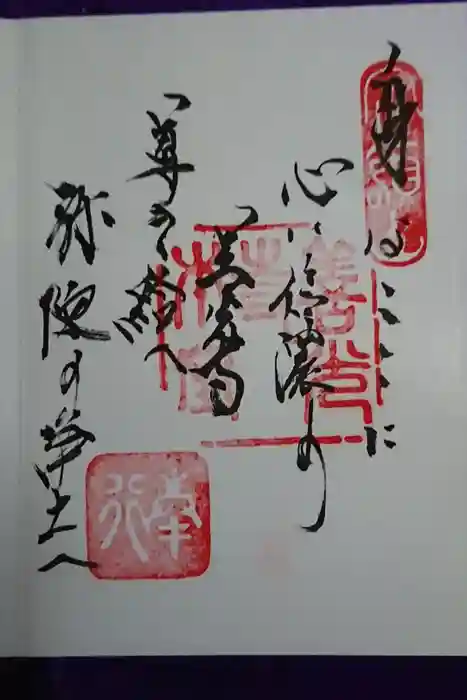 身はこゝに
心は信濃の
善光寺
導き給へ
弥陀の浄土へ